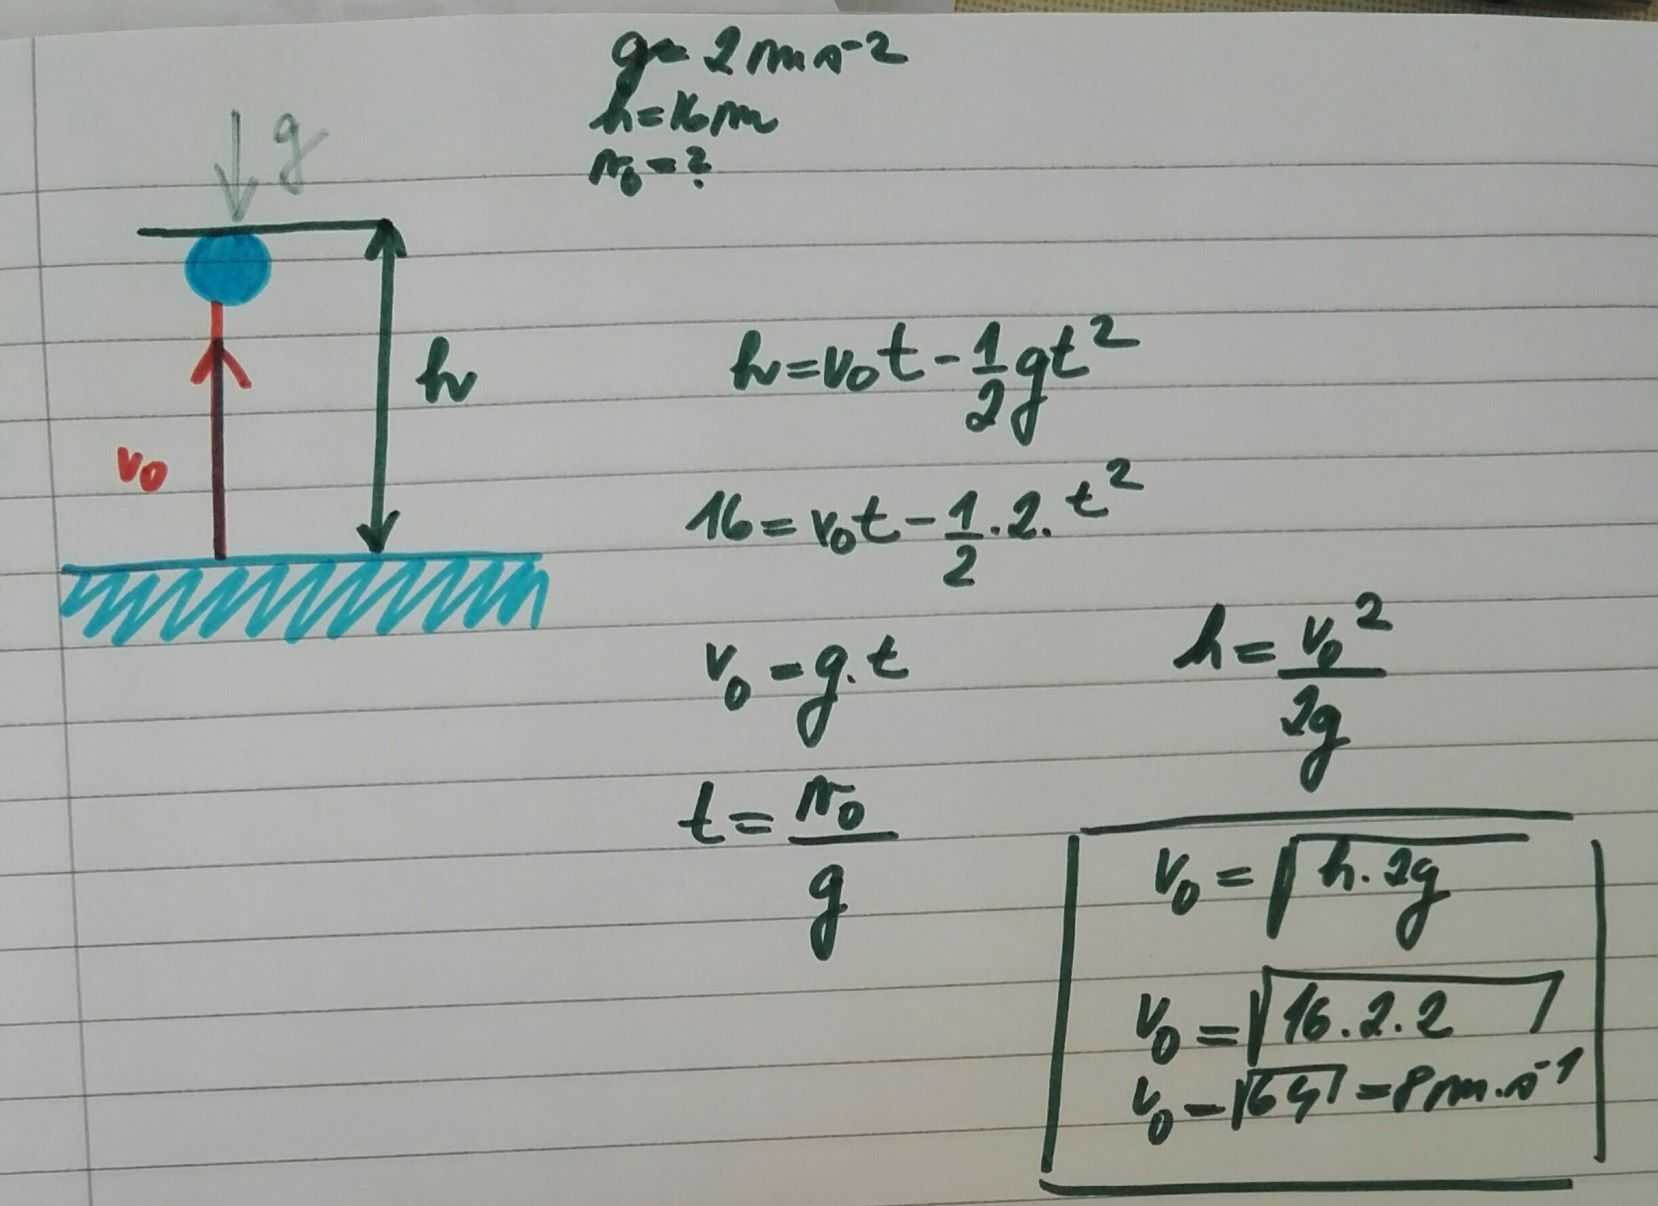 g = 2 m s⁻²
h = 16 m
v₀ = ?
g
h
v₀
h = v₀t - 1/2 gt²
16 = v₀t - 1/2 . 2 . t²
v₀ = g . t
t = v₀/g
h = v₀²/2g
v₀ = √h . 2g
v₀ = √16 . 2 . 2
v₀ = √64 = 8 m . s⁻¹